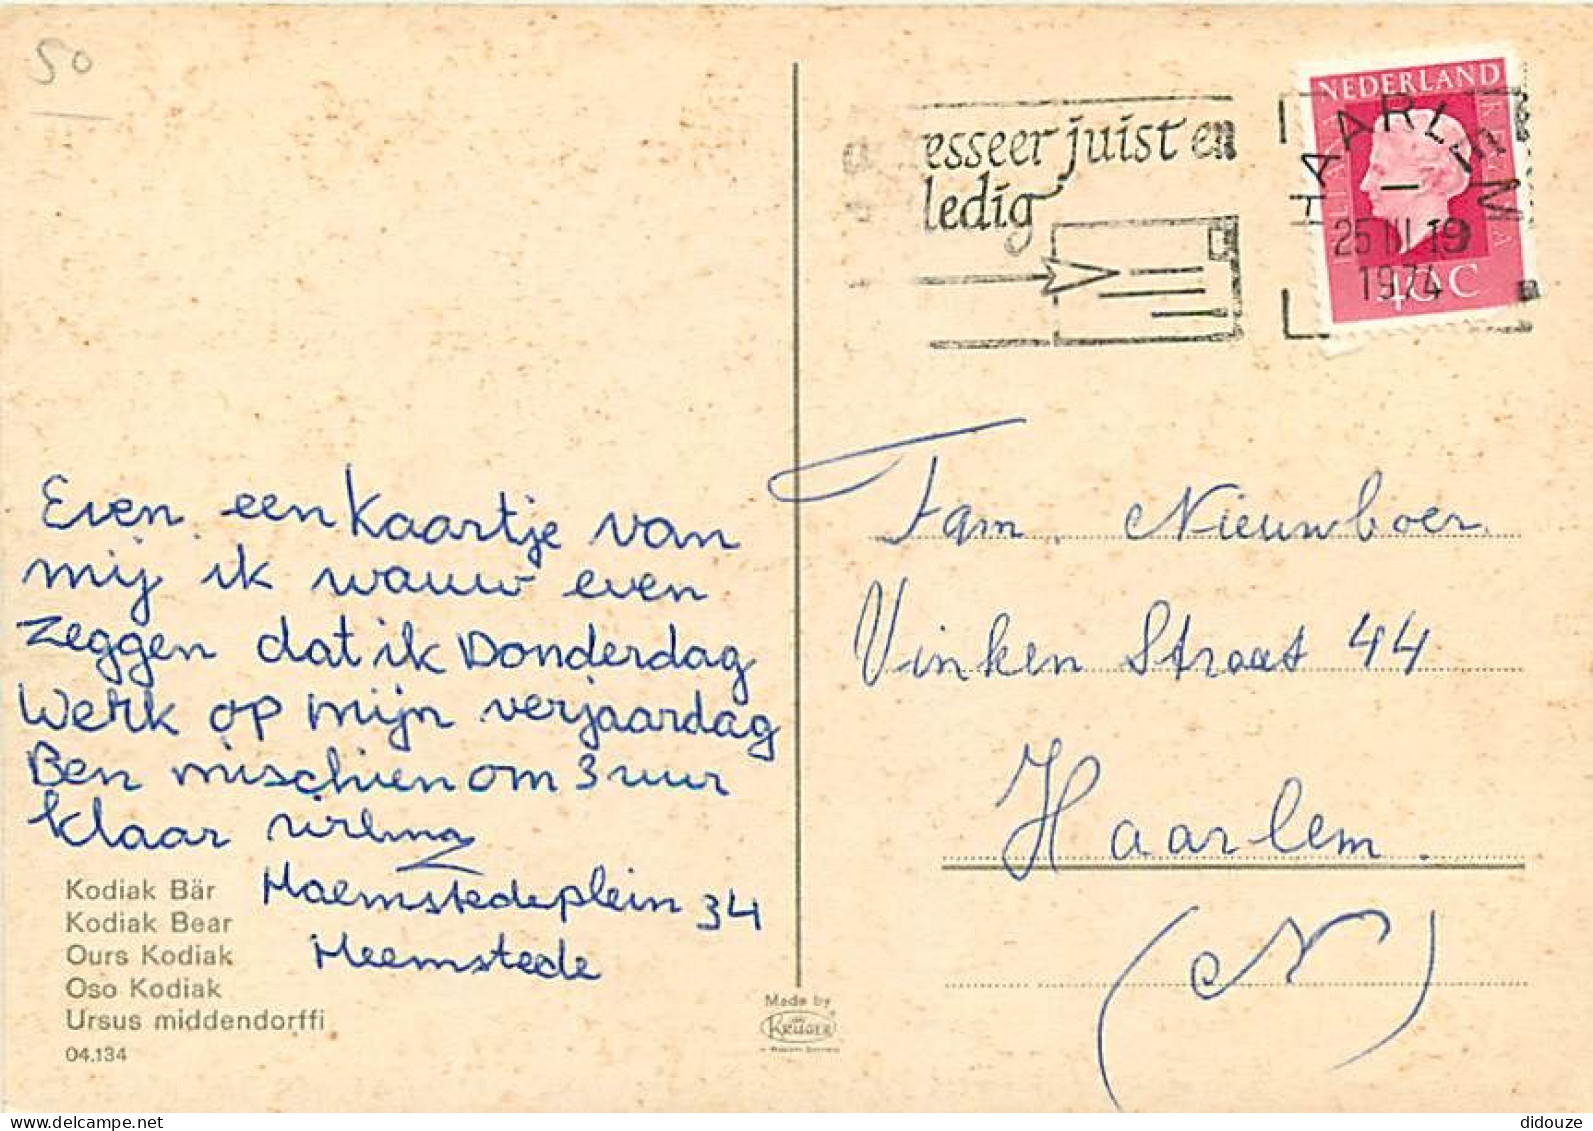 50
esseer juist en
ledig
NEDERLAND
JULIANA REGINA
HAARLEM
25 III 19
1974
40C
Even een kaartje van
mij ik wauw even
zeggen dat ik Donderdag
Werk op mijn verjaardag
Ben mischien om 3 uur
klaar
Haemstedeplein 34
Heemstede
Fam. Nieuwboer.
Vinken Straat 44
Haarlem.
(N)
Kodiak Bär
Kodiak Bear
Ours Kodiak
Oso Kodiak
Ursus middendorffi
04.134
Made by
KRÜGER
delcampe.net
didouze